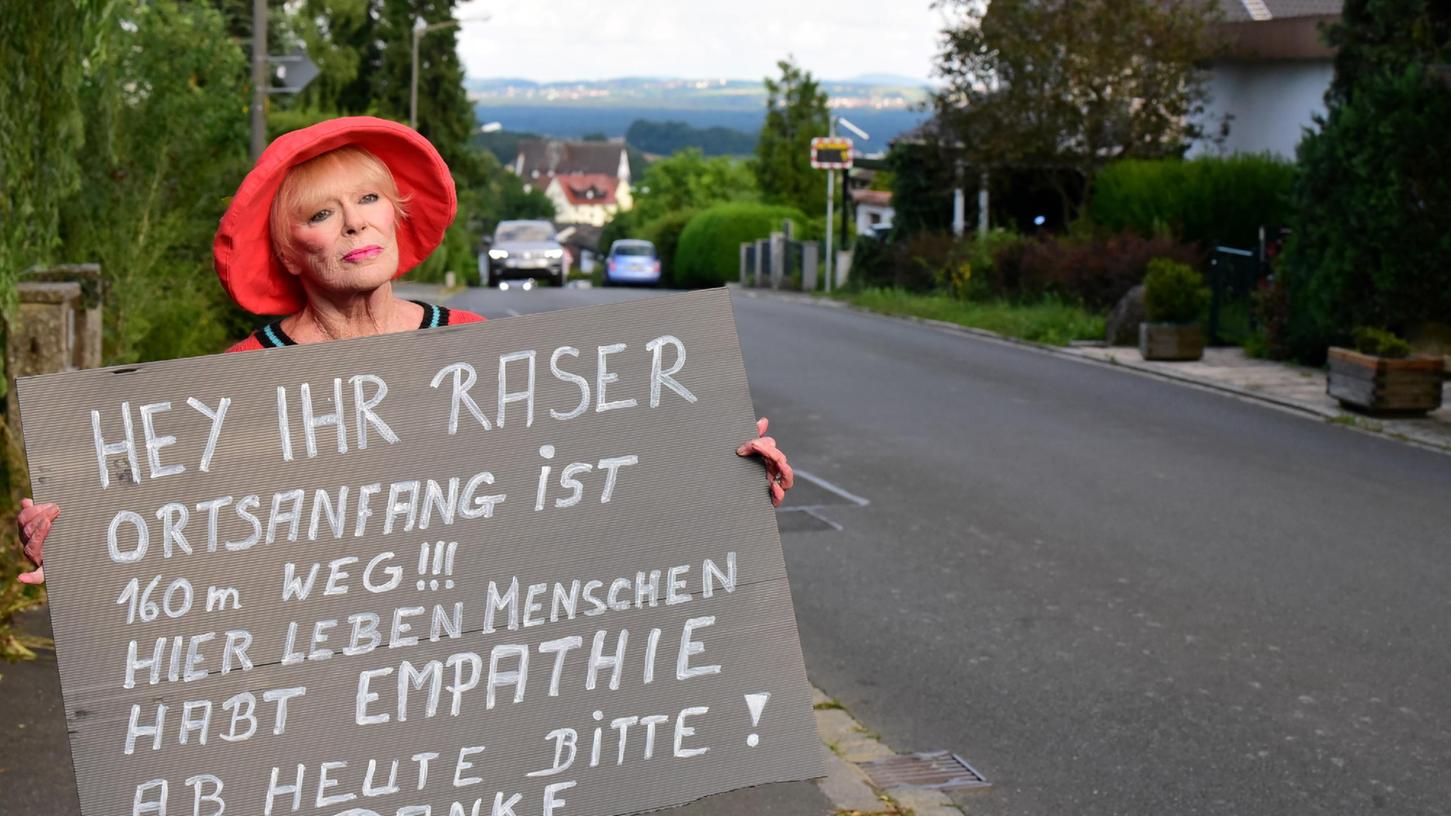 HEY IHR RASER
ORTSANFANG iST
160m WEG!!!
HIER LEBEN MENSCHEN
HABT EMPATHIE
AB HEUTE BiTTE!
DANKE